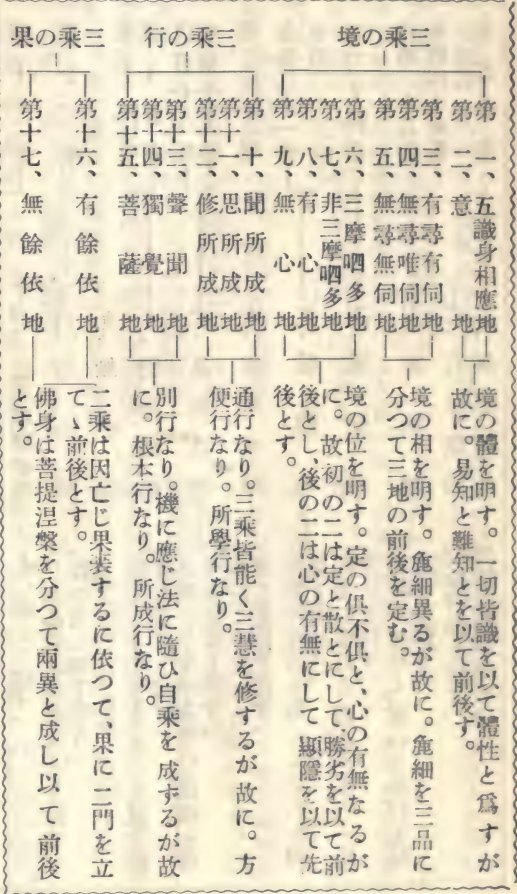 三乘の境
第一、五識身相應地
第二、意地
境の體を明す。一切皆識を以て體性と爲すが
故に。易知と難知とを以て前後す。
第三、有尋有伺地
第四、無尋唯伺地
第五、無尋無伺地
境の相を明す。麁細異るが故に。麁細を三品に
分つて三地の前後を定む。
第六、三摩呬多地
第七、非三摩呬多地
第八、有心地
第九、無心地
境の位を明す。定の俱不俱と、心の有無なるが
に。故初の二は定と散とにして、勝劣を以て前
後とし、後の二は心の有無にして顯隱を以て先
後とす。
三乘の行
第十、聞所成地
第十一、思所成地
第十二、修所成地
通行なり。三乘皆能く三慧を修するが故に。方
便行なり。所學行なり。
第十三、聲聞地
第十四、獨覺地
第十五、菩薩地
別行なり。機に應じ法に隨ひ自乘を成ずるが故
に。根本行なり。所成行なり。
三乘の果
第十六、有餘依地
第十七、無餘依地
二乘は因亡じ果喪するに依つて、果に二門を立
てゝ前後とす。
佛身は菩提涅槃を分つて兩異と成し以て前後
とす。